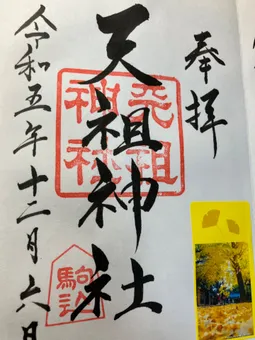 奉拝
天祖神社
天祖神社
駒込
令和五年十二月六日